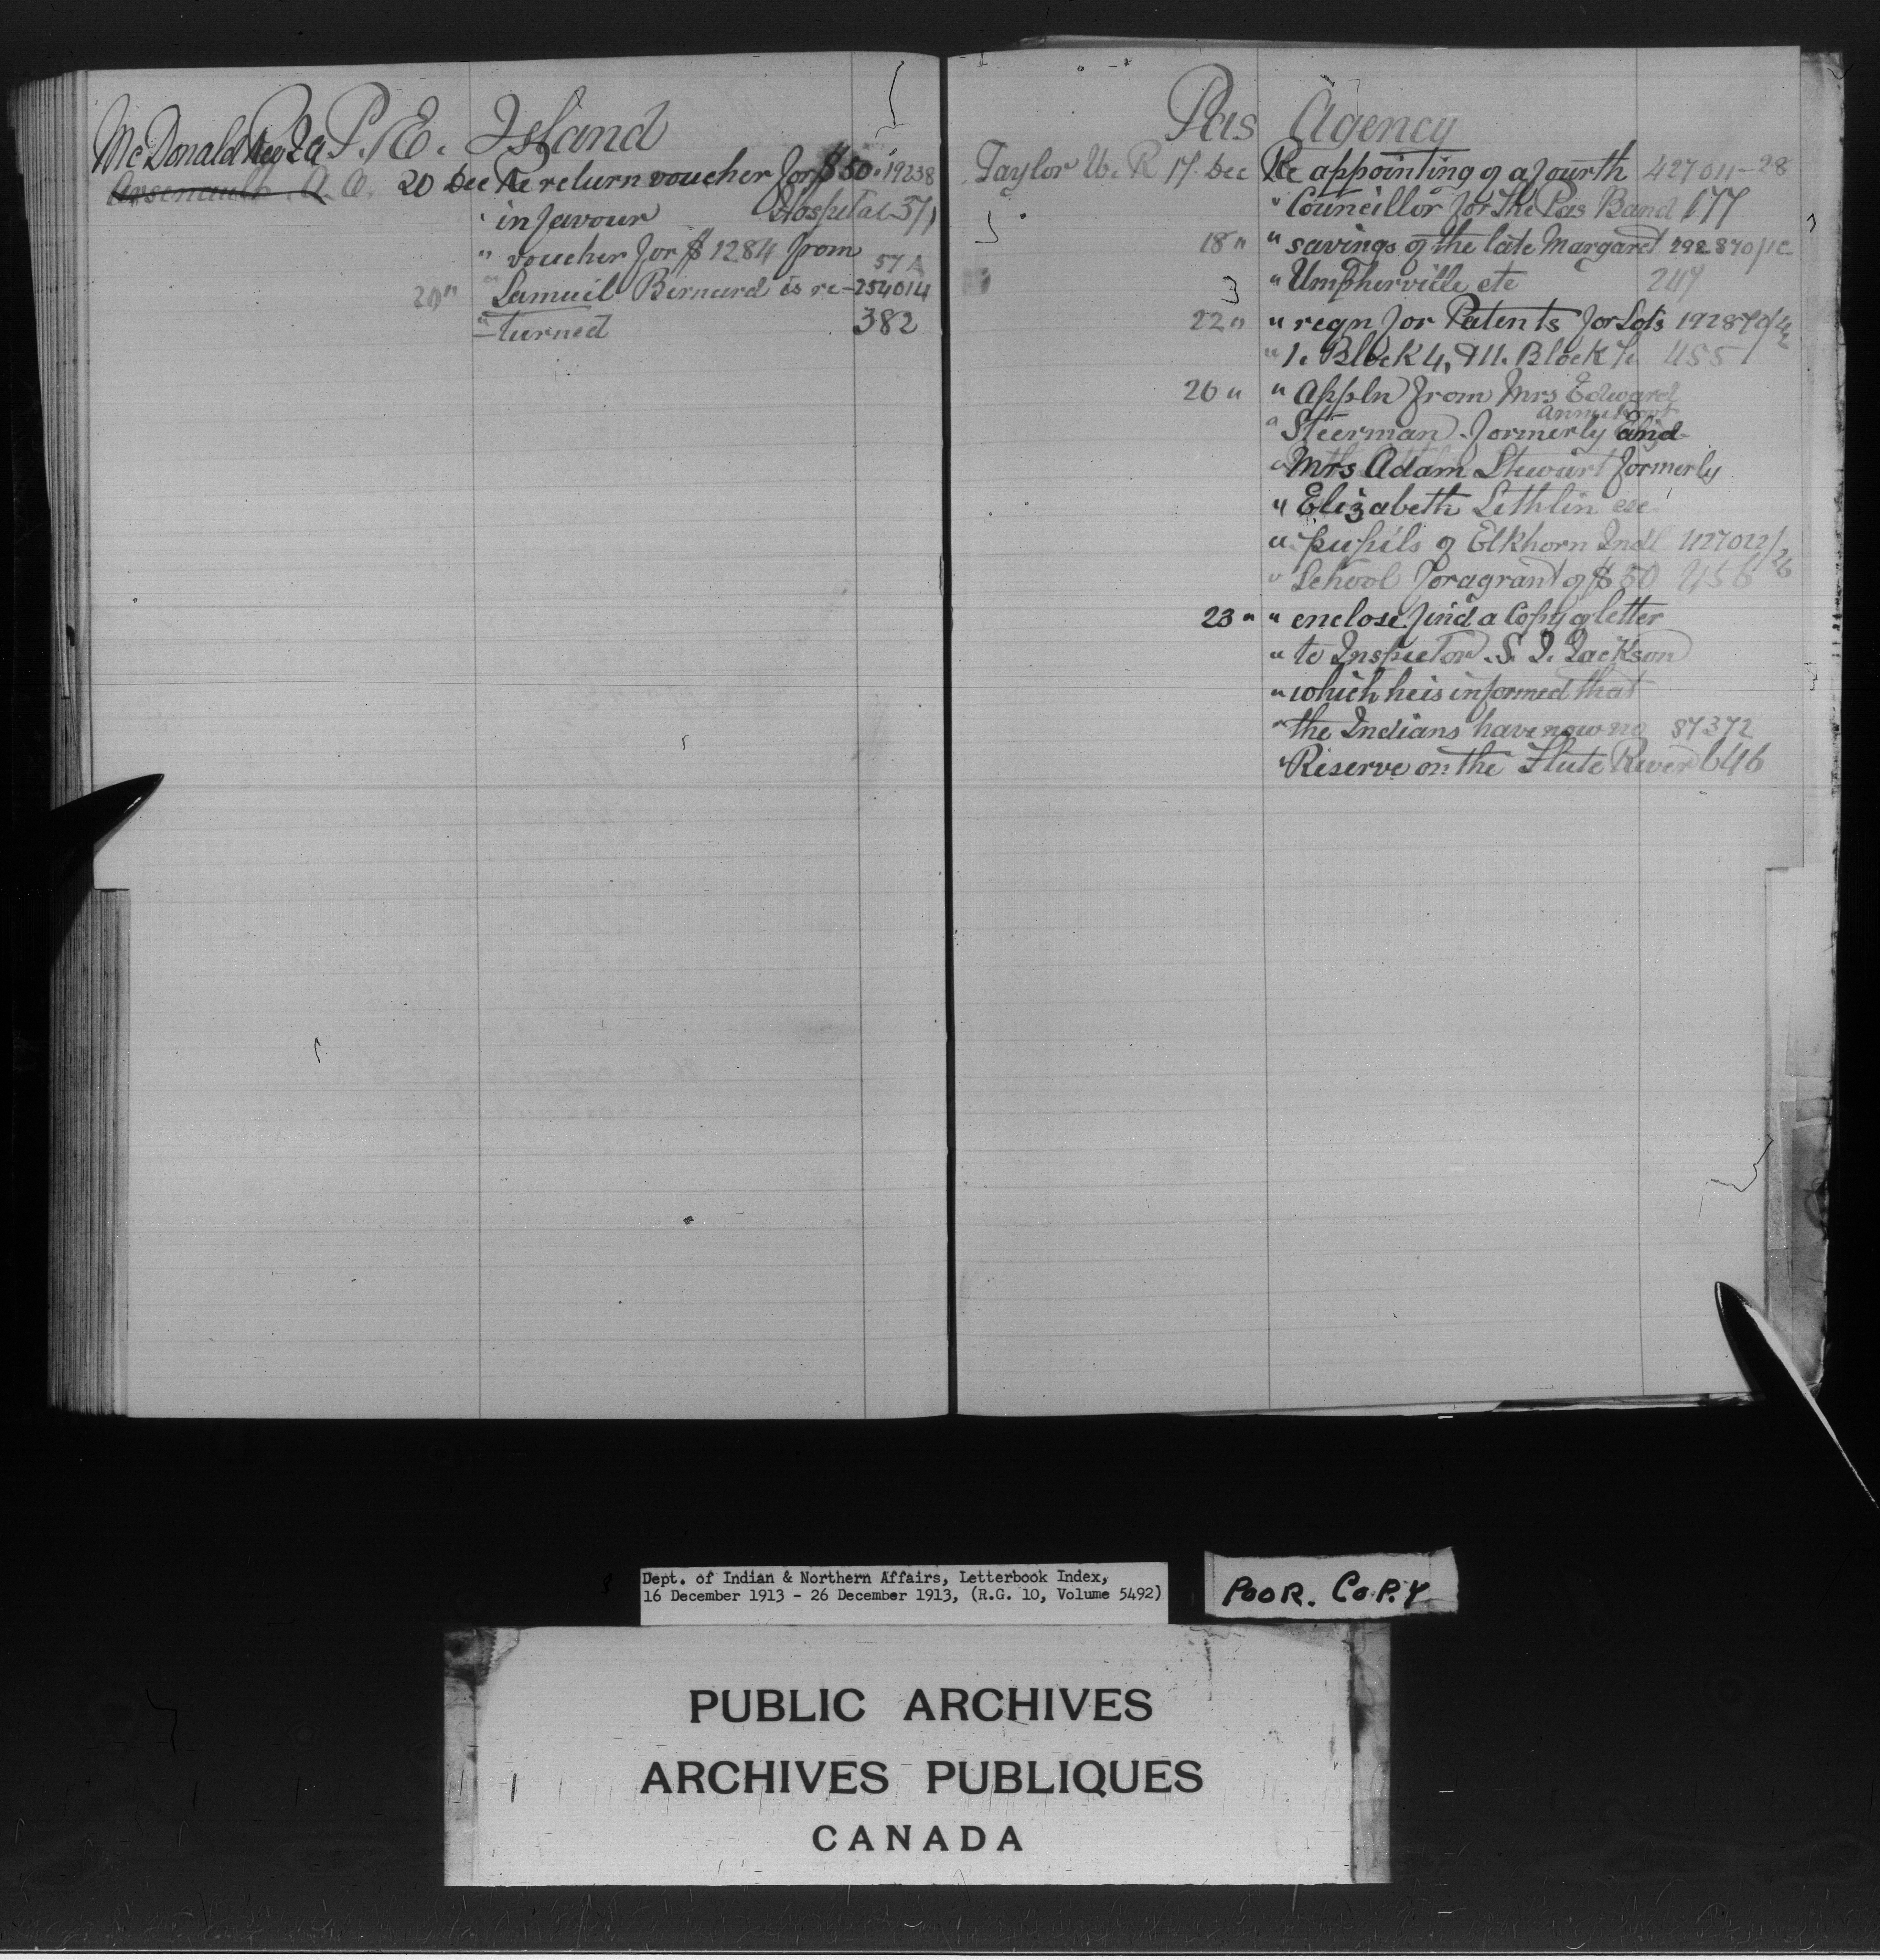 P. E. Island
McDonald
Arsenault J. O. 20 Dec Re return voucher for $50. 19238
" in favour Hospital 371
" voucher for $1284 from 57A
20 " " Samuel Bernard is re- 254014
" turned 382
Pas Agency
Taylor W. R 17 Dec Re appointing of a fourth 427011-28
" Councillor for The Pas Band 177
18 " " savings of the late Margaret
" Umpherville etc 249
22 " " reqn for Patents for Lots
" 1. Block 4, & 11. Block 7. 455
20 " " Appln from Mrs Edward
" Steerman formerly and
" Mrs Adam Stewart formerly
" Elizabeth Lethlin
" pupils of Elkhorn Indl 427022/26
" School for a grant of $50 456
23 " " enclose find a Copy of letter
" to Inspector S. J. Jackson
" which he is informed that
" the Indians have now no 87372
" Reserve on the Flute River 646
Dept. of Indian & Northern Affairs, Letterbook Index,
16 December 1913 - 26 December 1913, (R.G. 10, Volume 5492)
POOR. COPY
PUBLIC ARCHIVES
ARCHIVES PUBLIQUES
CANADA